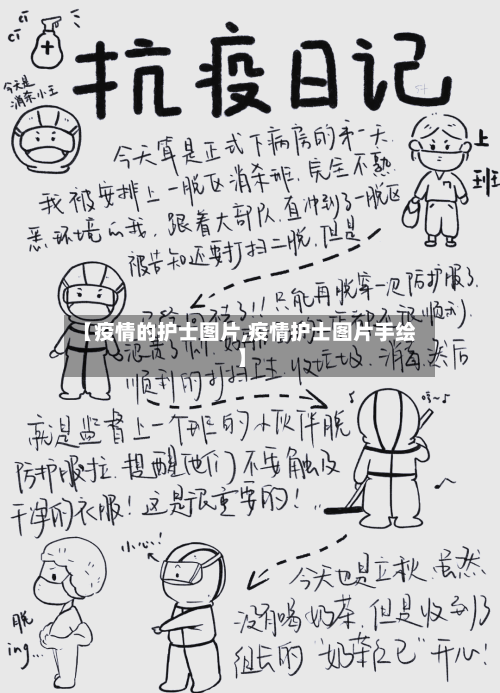 抗疫日记
今天是
消杀小王
上
班
今天算是正式下病房的第一天.
我被安排上一脱区消杀班,完全不熟
悉环境的我,跟着大部队,直冲到了一脱区
被告知还要打扫二脱,但是
!!只能再脱穿一次防护服了.
【疫情的护士图片,疫情护士图片手绘
】
顺利的打扫卫生.收垃圾.消毒.然后
就是监督上一个班的小伙伴脱
防护服拉.提醒他们不要触及
干净的衣服!这是很重要的!
小心!
脱
ing...
今天也是立秋,虽然
没有喝奶茶,但是收到了
组长的"奶茶红包"开心!